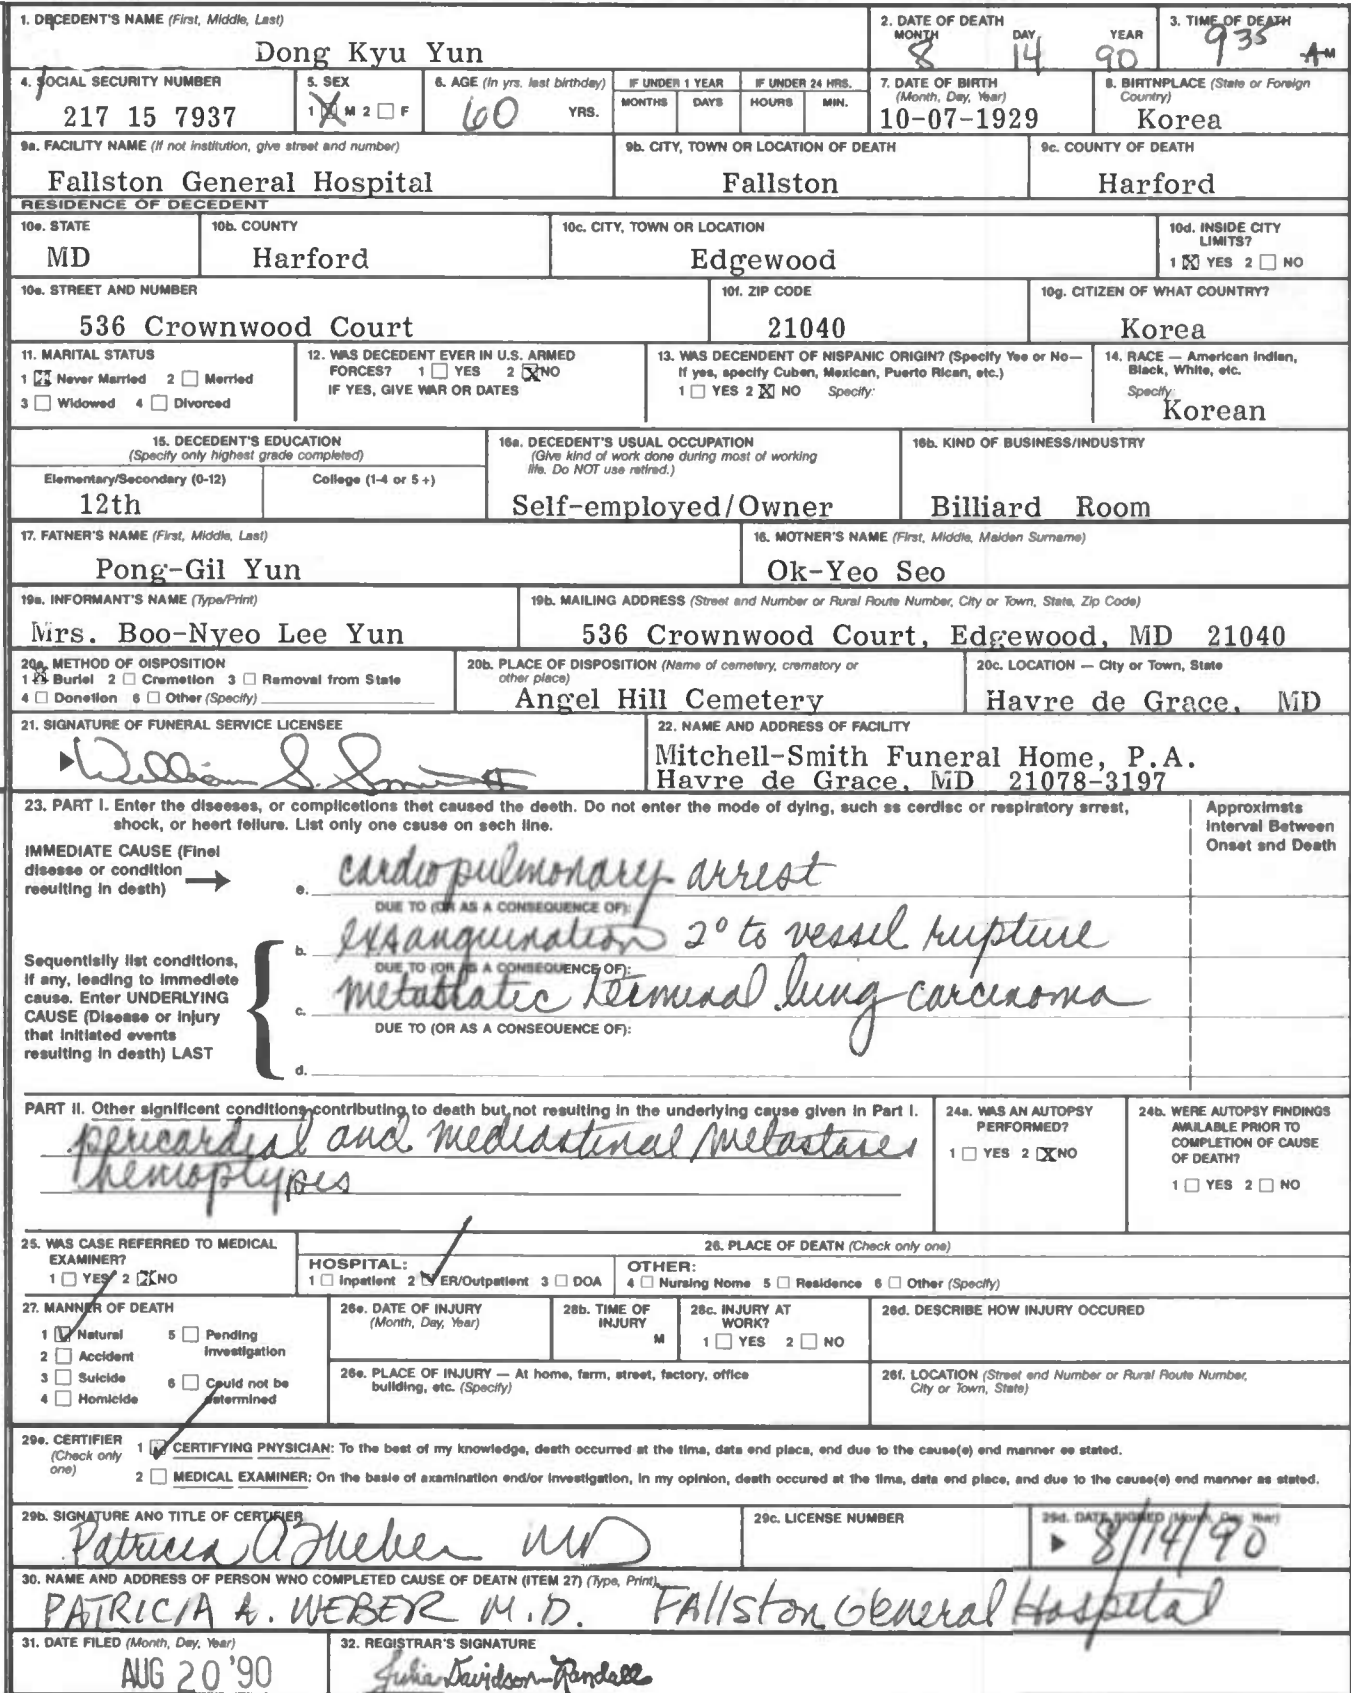 1. DECEDENT'S NAME (First, Middle, Last)
Dong Kyu Yun
2. DATE OF DEATH
MONTH DAY YEAR
8 14 90
3. TIME OF DEATH
935 AM
4. SOCIAL SECURITY NUMBER
217 15 7937
5. SEX
1 ☒ M 2 ☐ F
6. AGE (In yrs. last birthday)
60 YRS.
IF UNDER 1 YEAR
MONTHS DAYS
IF UNDER 24 HRS.
HOURS MIN.
7. DATE OF BIRTH
(Month, Day, Year)
10-07-1929
8. BIRTNPLACE (State or Foreign
Country)
Korea
9a. FACILITY NAME (If not institution, give street and number)
Fallston General Hospital
9b. CITY, TOWN OR LOCATION OF DEATH
Fallston
9c. COUNTY OF DEATH
Harford
RESIDENCE OF DECEDENT
10e. STATE
MD
10b. COUNTY
Harford
10c. CITY, TOWN OR LOCATION
Edgewood
10d. INSIDE CITY
LIMITS?
1 ☒ YES 2 ☐ NO
10e. STREET AND NUMBER
536 Crownwood Court
10f. ZIP CODE
21040
10g. CITIZEN OF WHAT COUNTRY?
Korea
11. MARITAL STATUS
1 ☒ Never Married 2 ☐ Merried
3 ☐ Widowed 4 ☐ Divorced
12. WAS DECEDENT EVER IN U.S. ARMED
FORCES? 1 ☐ YES 2 ☒ NO
IF YES, GIVE WAR OR DATES
13. WAS DECENDENT OF NISPANIC ORIGIN? (Specify Yee or No—
If yes, specify Cuben, Mexican, Puerto Rican, etc.)
1 ☐ YES 2 ☒ NO Specify:
14. RACE — American Indlen,
Bleck, White, etc.
Specify:
Korean
15. DECEDENT'S EDUCATION
(Specify only highest grade completed)
Elementary/Secondary (0-12) College (1-4 or 5+)
12th
16a. DECEDENT'S USUAL OCCUPATION
(Give kind of work done during most of working
life. Do NOT use retired.)
Self-employed/Owner
16b. KIND OF BUSINESS/INDUSTRY
Billiard Room
17. FATNER'S NAME (First, Middle, Last)
Pong-Gil Yun
16. MOTNER'S NAME (First, Middle, Maiden Surname)
Ok-Yeo Seo
19a. INFORMANT'S NAME (Type/Print)
Mrs. Boo-Nyeo Lee Yun
19b. MAILING ADDRESS (Street and Number or Rural Route Number, City or Town, State, Zip Code)
536 Crownwood Court, Edgewood, MD 21040
20a. METHOD OF OISPOSITION
1 ☒ Buriel 2 ☐ Cremetion 3 ☐ Removal from State
4 ☐ Donetlon 6 ☐ Other (Specify)
20b. PLACE OF DISPOSITION (Name of cemetery, crematory or
other place)
Angel Hill Cemetery
20c. LOCATION — City or Town, State
Havre de Grace, MD
21. SIGNATURE OF FUNERAL SERVICE LICENSEE
William S. Smith
22. NAME AND ADDRESS OF FACILITY
Mitchell-Smith Funeral Home, P.A.
Havre de Grace, MD 21078-3197
23. PART I. Enter the diseeses, or complicetions thet caused the deeth. Do not enter the mode of dying, such ss cerdisc or respiratory srrest,
shock, or heert feliure. List only one csuse on sech line.
Approximsts
Interval Between
Onset snd Death
IMMEDIATE CAUSE (Finel
disesse or condition
resulting in death)
e. cardiopulmonary arrest
DUE TO (OR AS A CONSEQUENCE OF):
b. exsanguination 2° to vessel rupture
DUE TO (OR AS A CONSEQUENCE OF):
c. metastatic terminal lung carcinoma
DUE TO (OR AS A CONSEQUENCE OF):
d.
Sequentislly list conditions,
if any, leading to immediete
cause. Enter UNDERLYING
CAUSE (Disesse or Injury
that initiated events
resulting in desth) LAST
PART II. Other significent conditions contributing to death but not resulting in the underlying cause given in Part I.
pericardial and mediastinal metastases
hemoptypes
24a. WAS AN AUTOPSY
PERFORMED?
1 ☐ YES 2 ☒ NO
24b. WERE AUTOPSY FINDINGS
AVAILABLE PRIOR TO
COMPLETION OF CAUSE
OF DEATH?
1 ☐ YES 2 ☐ NO
25. WAS CASE REFERRED TO MEDICAL
EXAMINER?
1 ☐ YES 2 ☒ NO
26. PLACE OF DEATH (Check only one)
HOSPITAL:
1 ☐ Inpatlent 2 ☑ ER/Outpatlent 3 ☐ DOA
OTHER:
4 ☐ Nursing Nome 5 ☐ Residence 6 ☐ Other (Specify)
27. MANNER OF DEATH
1 ☑ Natural 5 ☐ Pending
Investigation
2 ☐ Accident
3 ☐ Suicide 6 ☐ Could not be
determined
4 ☐ Homicide
26e. DATE OF INJURY
(Month, Day, Year)
28b. TIME OF
INJURY
M
28c. INJURY AT
WORK?
1 ☐ YES 2 ☐ NO
26d. DESCRIBE HOW INJURY OCCURED
26e. PLACE OF INJURY — At home, ferm, street, factory, office
building, etc. (Specify)
26f. LOCATION (Street end Number or Rural Route Number,
City or Town, State)
29e. CERTIFIER
(Check only
one)
1 ☑ CERTIFYING PNYSICIAN: To the best of my knowledge, death occurred at the tims, data end place, end due to the cause(e) end manner ee stated.
2 ☐ MEDICAL EXAMINER: On the basie of axamination end/or Investigation, in my opinion, death occured at the tims, data end place, and due to the cause(e) end manner as stated.
29b. SIGNATURE ANO TITLE OF CERTIFIER
Patricia A Weber MD
29c. LICENSE NUMBER
29d. DATE SIGNED (Month, Day, Year)
8/14/90
30. NAME AND ADDRESS OF PERSON WNO COMPLETED CAUSE OF DEATN (ITEM 27) (Type, Print)
PATRICIA A. WEBER M.D. FAllston General Hospital
31. DATE FILED (Month, Day, Year)
AUG 20 '90
32. REGISTRAR'S SIGNATURE
Julia Davidson-Randall